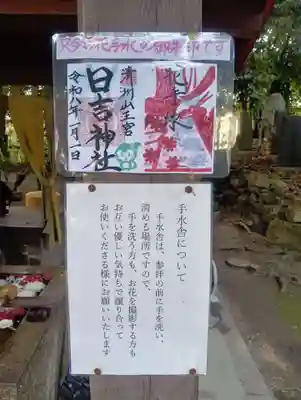 限定花手水の御朱印です
花手水
清洲山王宮
日吉神社
令和八年一月一日
手水舎について
手水舎は、参拝の前に手を洗い、
清める場所ですので、
手を洗う方も、お花を撮影する方も
お互い優しい気持ちで譲り合って
お使いくださる様にお願いいたします